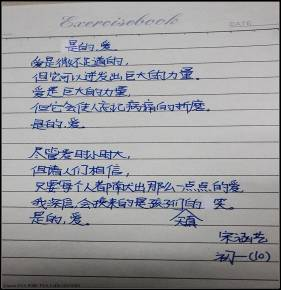 Exercisebook
DATE
是的,爱
爱是微不足道的,
但它可以迸发出巨大的力量。
爱是巨大的力量,
但它会使人忘记病痛的折磨。
是的,爱。
尽管爱时小时大,
但请人们相信,
只要每个人都献出那么一点点的爱
我深信,会换来的是孩子们的天真笑。
是的,爱。
宋涵艺
初一(10)